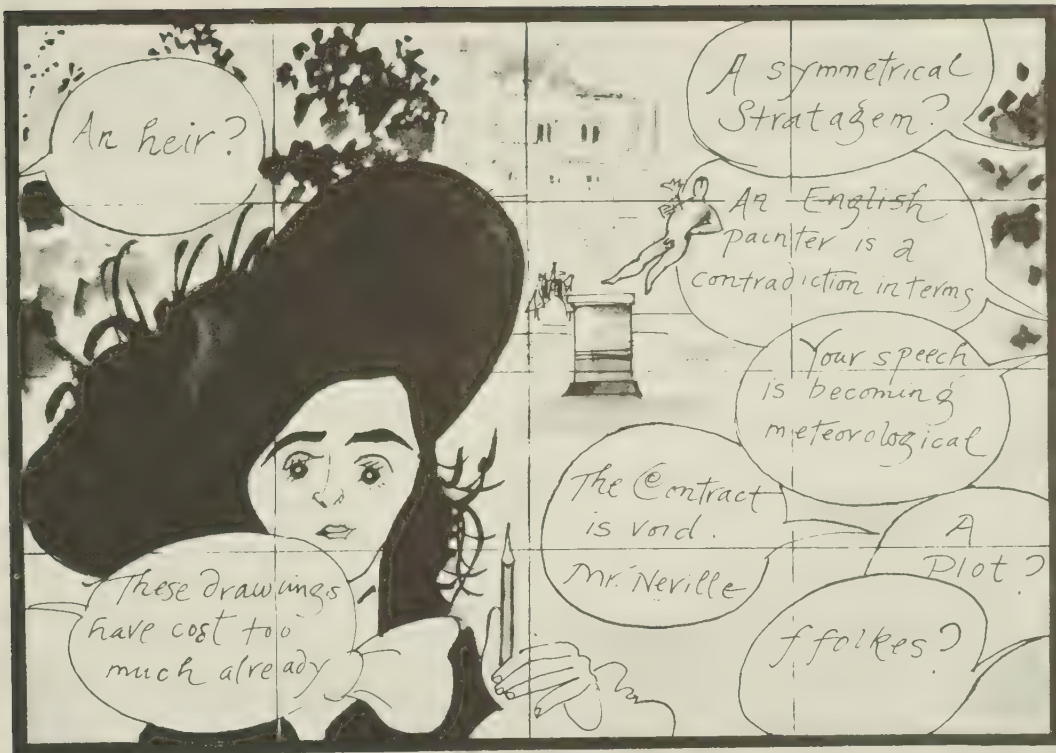 An heir?
A symmetrical
Stratagem?
An English
painter is a
contradiction in terms
Your speech
is becoming
meteorological
The Contract
is void.
Mr. Neville
A
Plot?
ffolkes?
These drawings
have cost too
much already